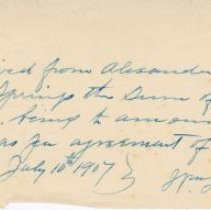 ived from Alexander
Springs the Sum of
being to am
as per agreement of
July 10th 1907